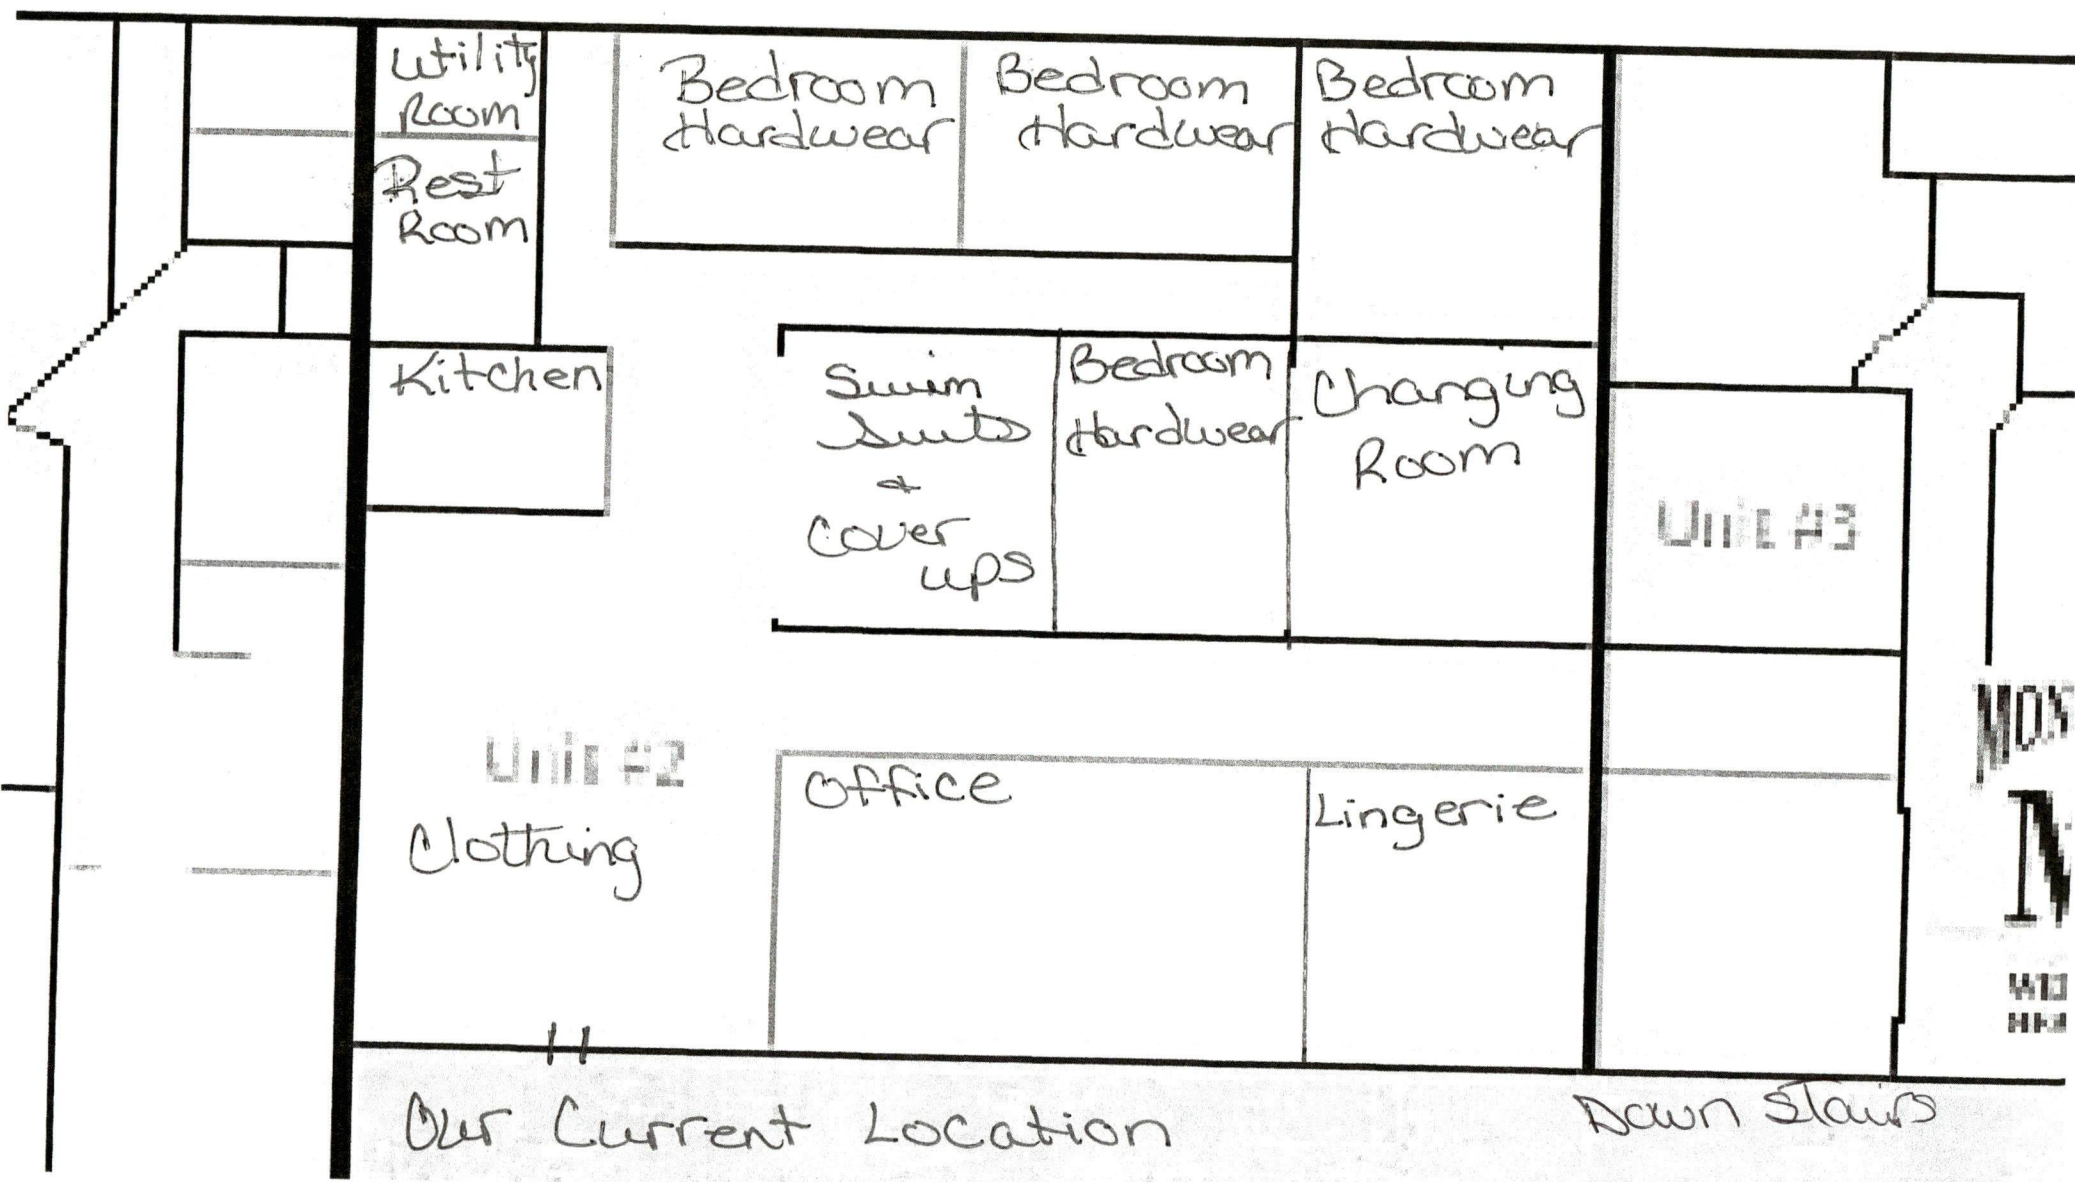 Utility
Room
Rest
Room
Bedroom
Hardwear
Bedroom
Hardwear
Bedroom
Hardwear
Kitchen
Swim
Suits
&
Cover
ups
Bedroom
Hardwear
Changing
Room
Unit #3
Unit #2
Clothing
Office
Lingerie
Our Current Location
Down Stairs